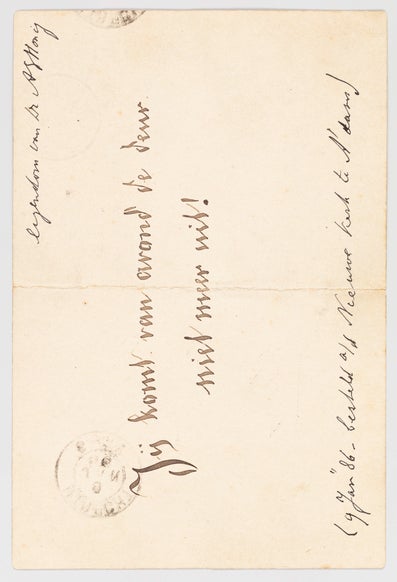 Eigendom van Dr A G Honig
Jij komt van avond de deur
niet meer uit!
(9 Jan '86 – besteld a/d Nieuwe Kerk te A'dam)